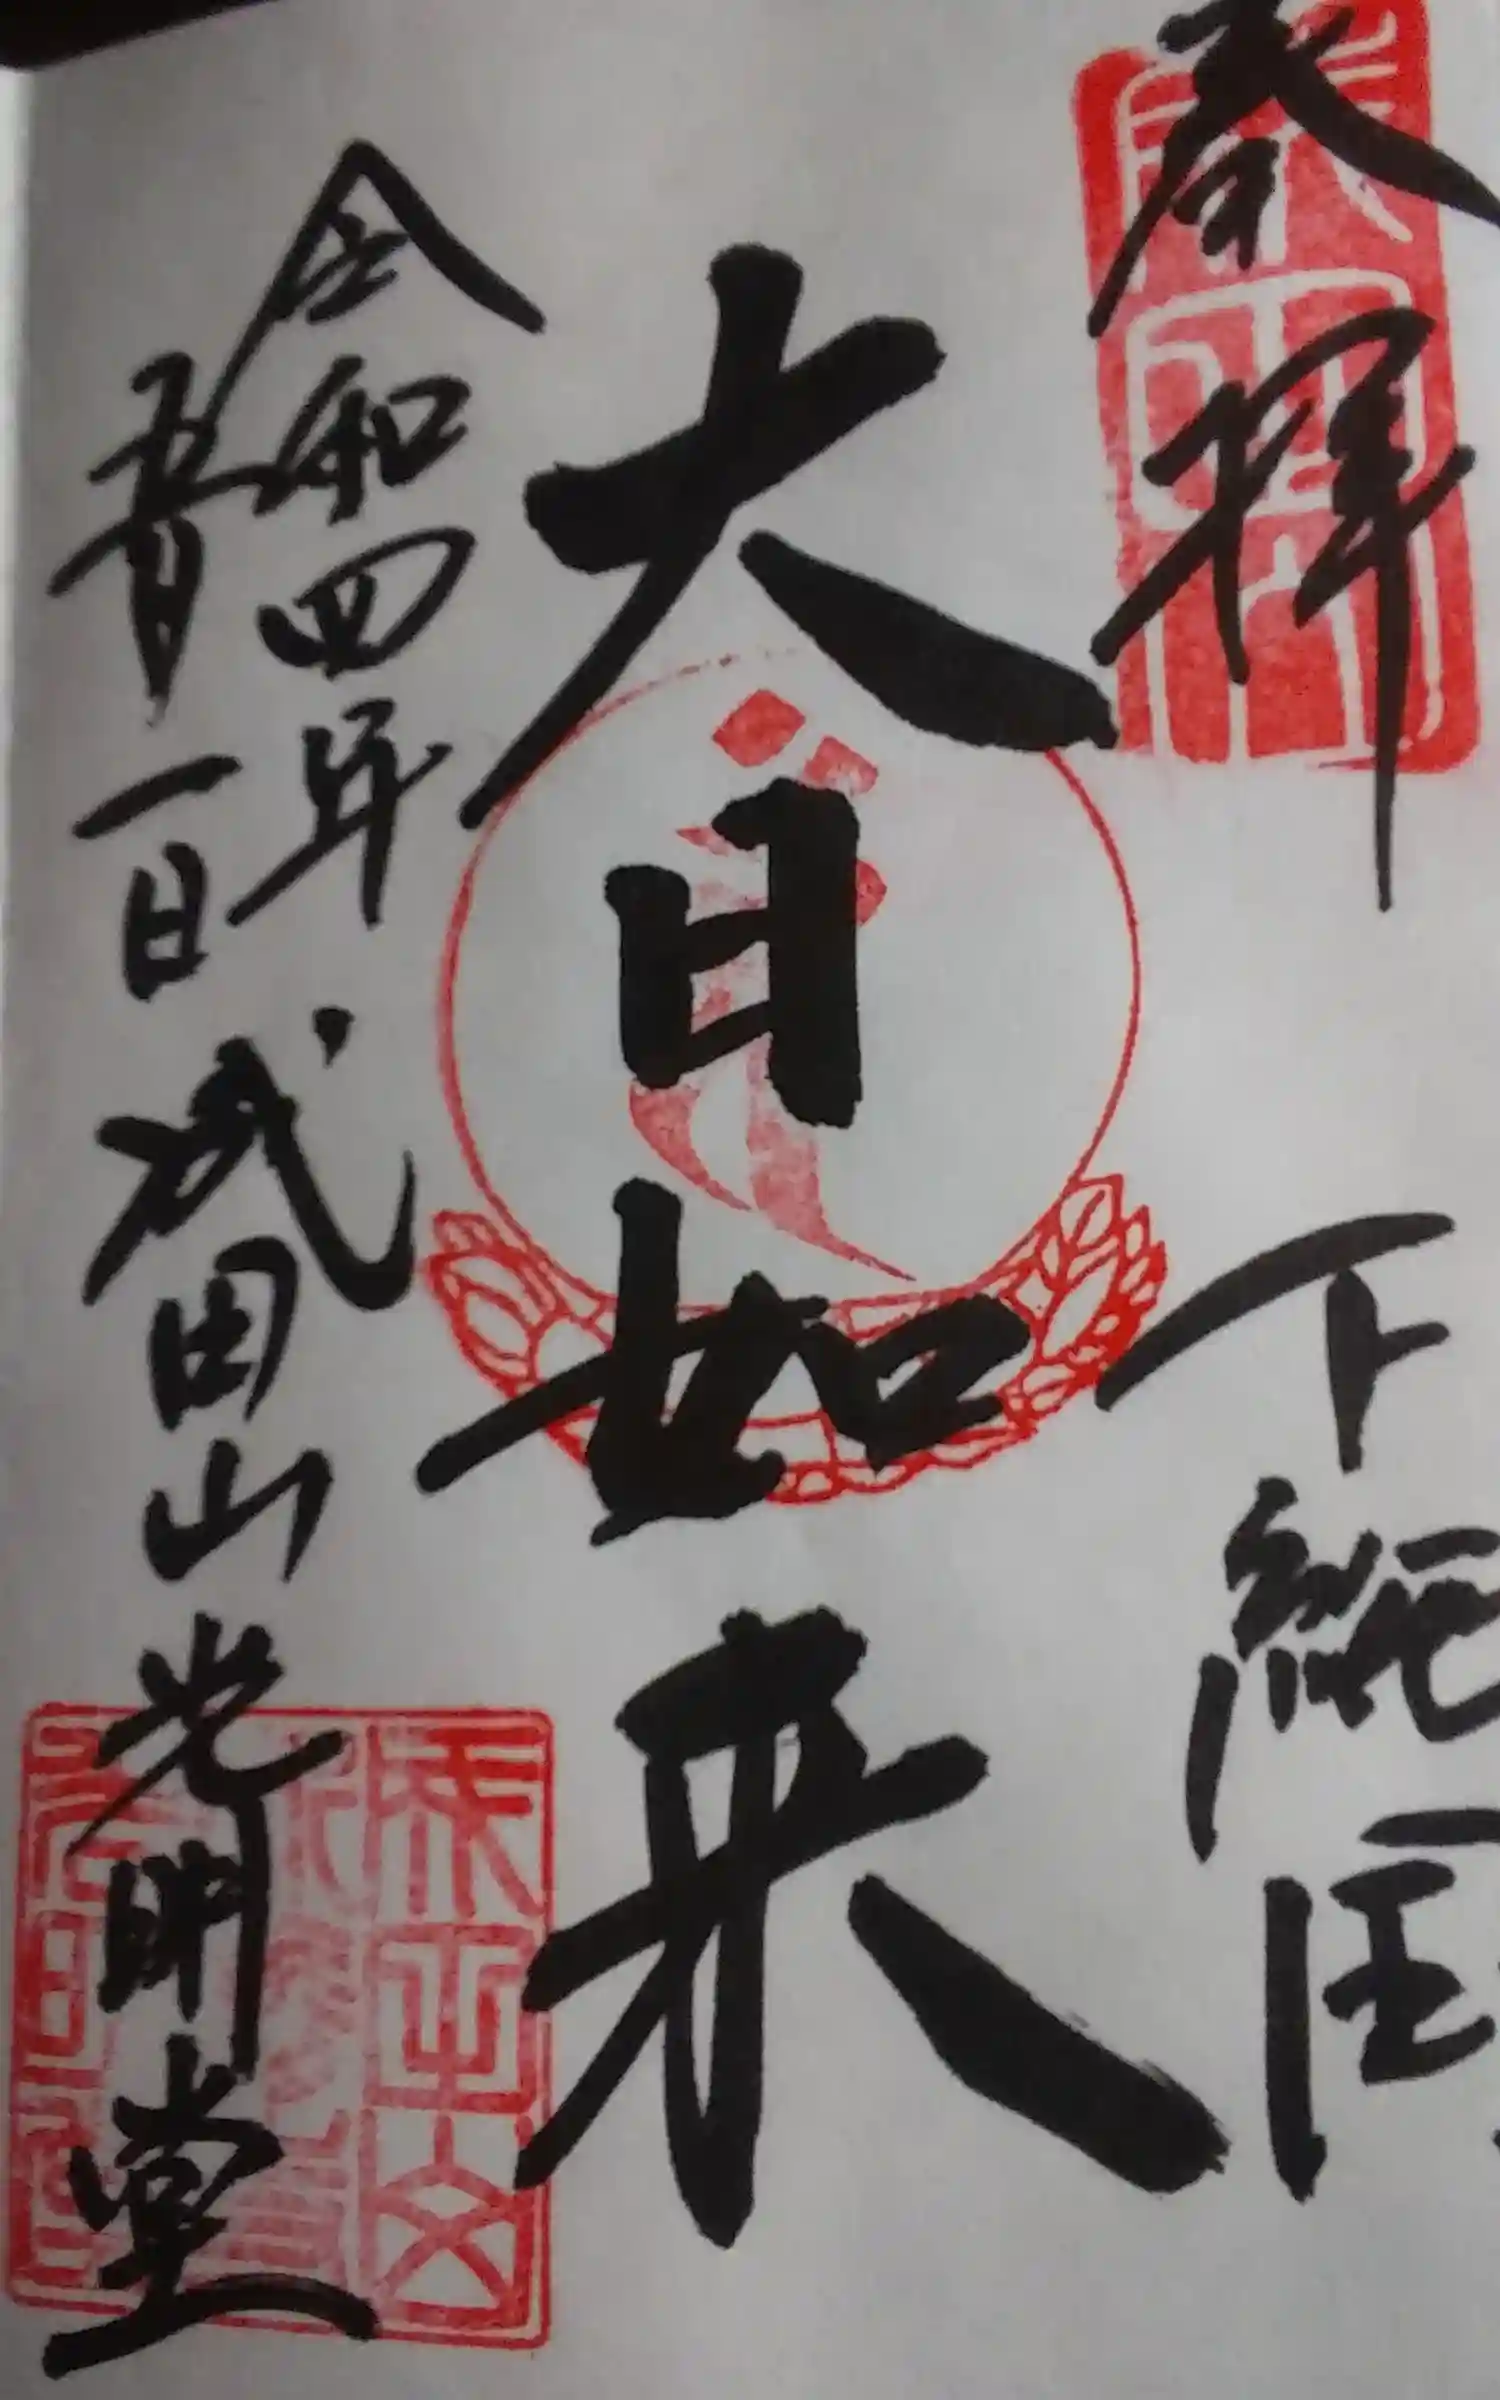 奉拝
下総国
大日如来
令和四年
五月一日
成田山光明堂